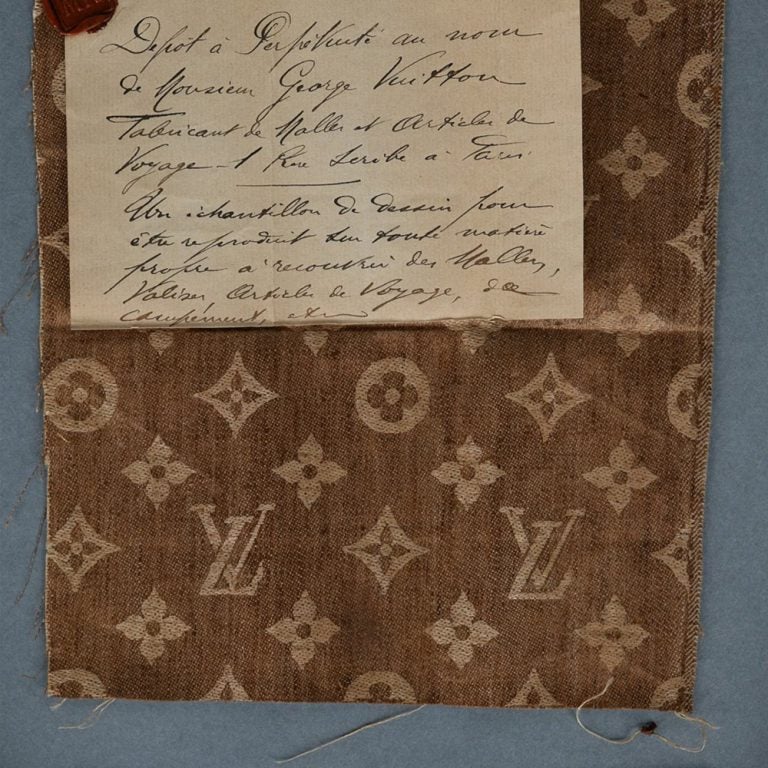 Dépot à Perpétuité au nom
de Monsieur George Vuitton
Fabricant de Malles et Articles de
Voyage - 1 Rue Scribe à Paris.
Un échantillon de dessin pour
être reproduit sur toute matière
propre à recouvrir des Malles,
Valises, Articles de Voyage, de
campement, etc
LV LV